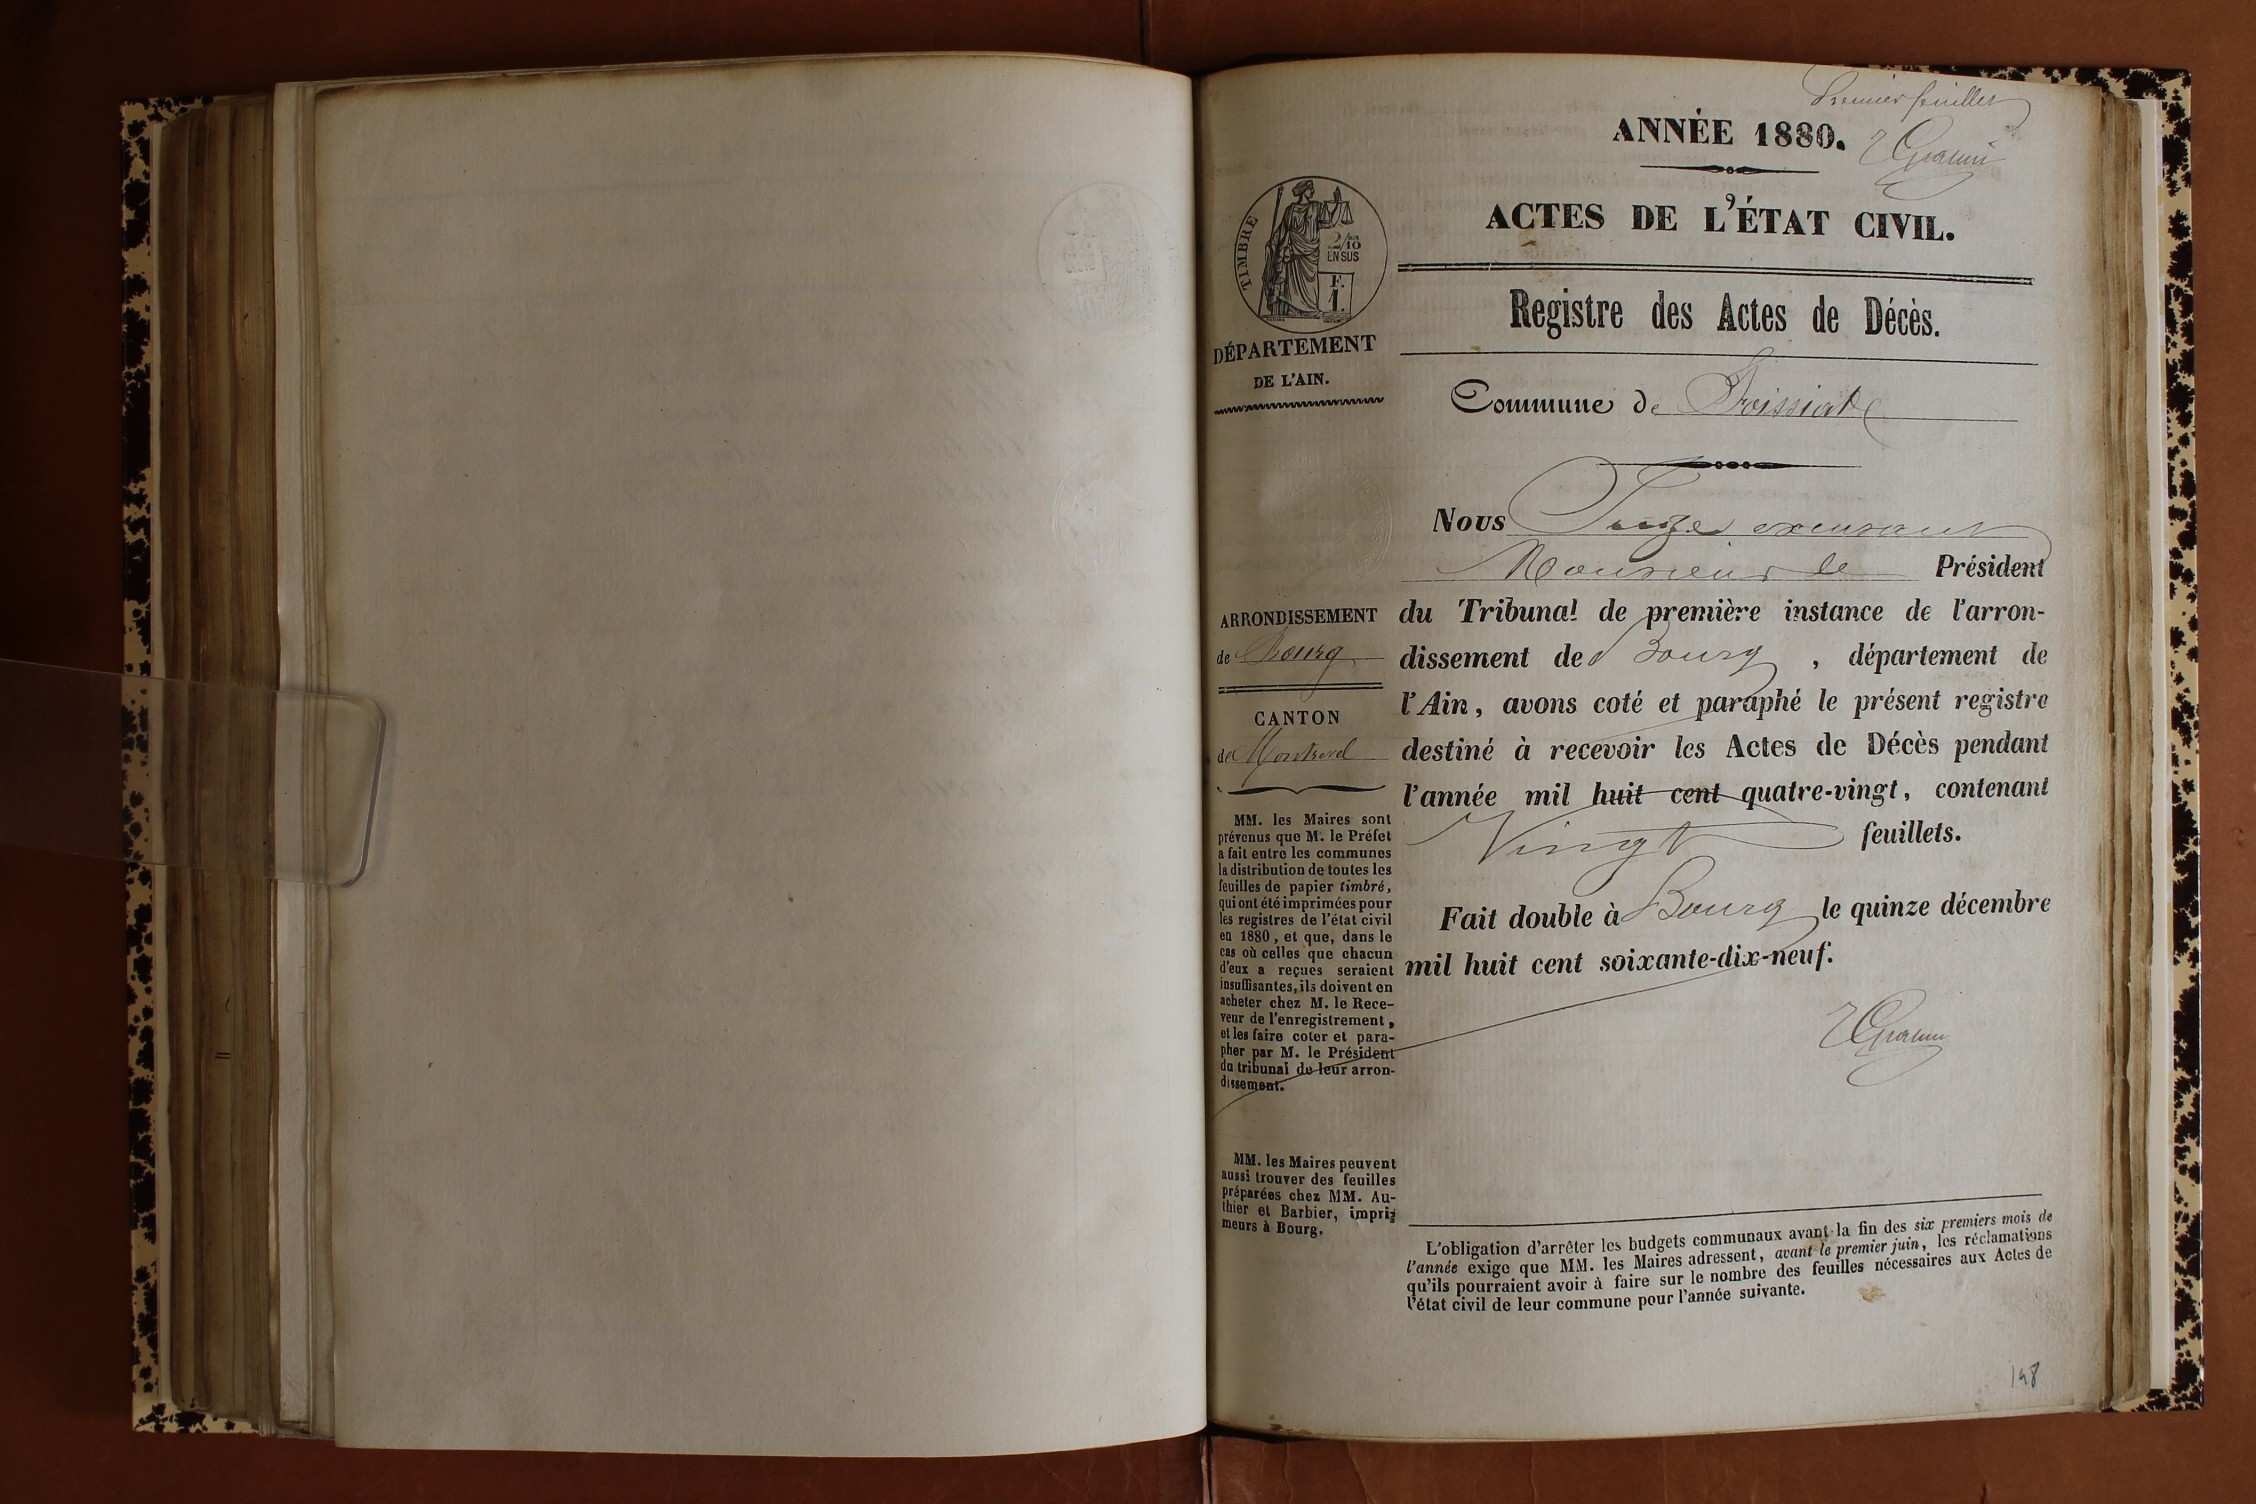 Premier feuillet
ANNÉE 1880.
ACTES DE L'ÉTAT CIVIL.
TIMBRE
2/10
EN SUS
F.
1.
DÉPARTEMENT
DE L'AIN.
Registre des Actes de Décès.
Commune de Foissiat
Nous Juge
Monsieur le Président
ARRONDISSEMENT
de Bourg
CANTON
de Montrevel
du Tribunal de première instance de l'arron-
dissement de Bourg, département de
l'Ain, avons coté et paraphé le présent registre
destiné à recevoir les Actes de Décès pendant
l'année mil huit cent quatre-vingt, contenant
Vingt feuillets.
Fait double à Bourg le quinze décembre
mil huit cent soixante-dix-neuf.
MM. les Maires sont
prévenus que M. le Préfet
a fait entre les communes
la distribution de toutes les
feuilles de papier timbré,
qui ont été imprimées pour
les registres de l'état civil
en 1880, et que, dans le
cas où celles que chacun
d'eux a reçues seraient
insuffisantes, ils doivent en
acheter chez M. le Rece-
veur de l'enregistrement,
et les faire coter et para-
pher par M. le Président
du tribunal de leur arron-
dissement.
MM. les Maires peuvent
aussi trouver des feuilles
préparées chez MM. Au-
thier et Barbier, impri-
meurs à Bourg.
L'obligation d'arrêter les budgets communaux avant la fin des six premiers mois de
l'année exige que MM. les Maires adressent, avant le premier juin, les réclamations
qu'ils pourraient avoir à faire sur le nombre des feuilles nécessaires aux Actes de
l'état civil de leur commune pour l'année suivante.
198